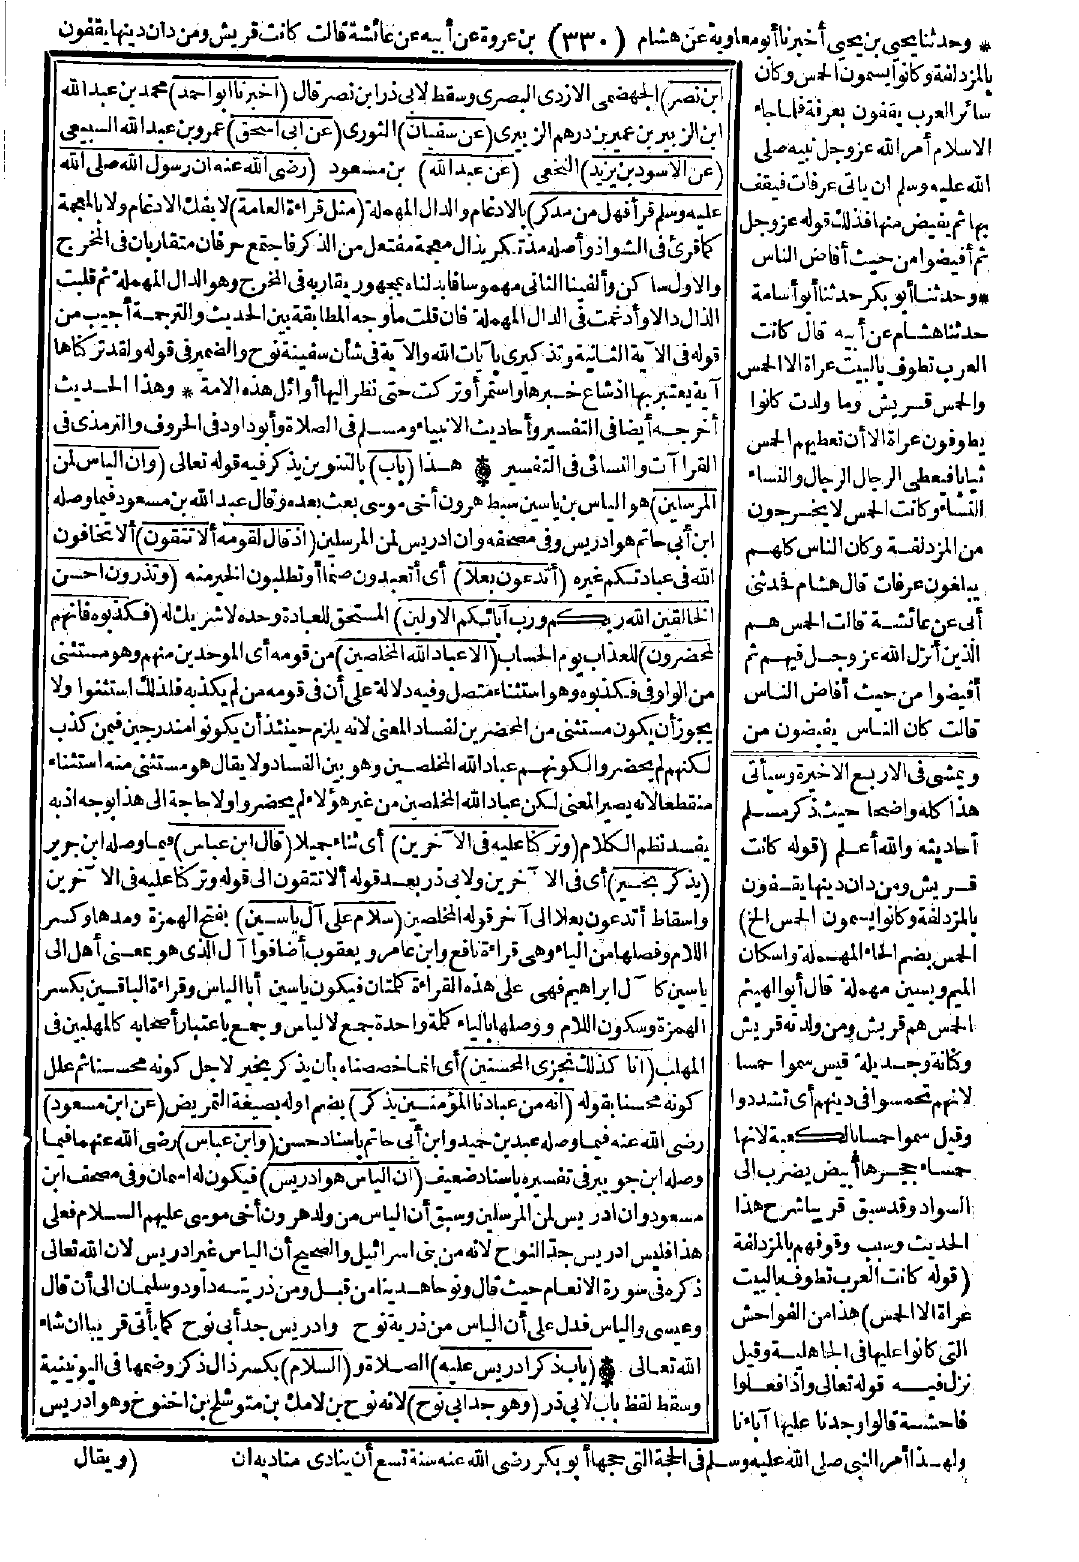 * وحدثنا يحيى بن يحيى أخبرنا أبو معاوية عن هشام (٣٣٠) بن عروة عن أبيه عن عائشة قالت كانت قريش ومن دان دينها يقفون
بالمزدلفة وكانوا يسمون الحمس وكان
سائر العرب يقفون بعرفة فلما جاء
الاسلام أمر الله عز وجل نبيه صلى
الله عليه وسلم ان يأتى عرفات فيقف
بها ثم يفيض منها فذلك قوله عز وجل
ثم أفيضوا من حيث أفاض الناس
* وحدثنا أبو بكر حدثنا أبو أسامة
حدثنا هشام عن أبيه قال كانت
العرب تطوف بالبيت عراة الا الحمس
والحمس قريش وما ولدت كانوا
يطوفون عراة الا أن تعطيهم الحمس
ثيابا فيعطى الرجال الرجال والنساء
النساء وكانت الحمس لا يخرجون
من المزدلفة وكان الناس كلهم
يبلغون عرفات قال هشام فحدثنى
أبى عن عائشة قالت الحمس هم
الذين أنزل الله عز وجل فيهم ثم
أفيضوا من حيث أفاض الناس
قالت كان الناس يفيضون من
ويمشى فى الاربع الاخيرة وسيأتى
هذا كله واضحا حيث ذكر مسلم
أحاديثه والله أعلم (قوله كانت
قريش ومن دان دينها يقفون
بالمزدلفة وكانوا يسمون الحمس الخ)
الحمس بضم الحاء المهملة واسكان
الميم وبسين مهملة قال أبو الهيثم
الحمس هم قريش ومن ولدته قريش
وكنانة وجديلة قيس سموا حمسا
لانهم تحمسوا فى دينهم أى تشددوا
وقيل سموا حمسا بالكعبة لانها
حمساء حجرها أبيض يضرب الى
السواد وقد سبق قريبا شرح هذا
الحديث وسبب وقوفهم بالمزدلفة
(قوله كانت العرب تطوف بالبيت
عراة الا الحمس) هذا من الفواحش
التى كانوا عليها فى الجاهلية وقيل
نزل فيه قوله تعالى واذا فعلوا
فاحشة قالوا وجدنا عليها آباءنا
ولهذا أمر النبى صلى الله عليه وسلم فى الحجة التى حجها أبو بكر رضى الله عنه سنة تسع أن ينادى مناديه ان
ابن نصر) الجهضمى الازدى البصرى وسقط لابى ذر ابن نصر قال (أخبرنا أبو احمد) محمد بن عبد الله
ابن الزبير بن عمر بن درهم الزبيرى (عن سفيان) الثورى (عن ابى اسحق) عمرو بن عبد الله السبيعى
(عن الاسود بن يزيد) النخعى (عن عبد الله) بن مسعود (رضى الله عنه ان رسول الله صلى الله
عليه وسلم قرأ فهل من مدكر) بالادغام والدال المهملة (مثل قراءة العامة) لا بفك الادغام ولا بالمعجمة
كما قرئ فى الشواذ وأصله مذتكر بذال معجمة مفتعل من الذكر فاجتمع حرفان متقاربان فى المخرج
والاول ساكن وألفينا الثانى مهموسا فابدلناه بمجهور يقاربه فى المخرج وهو الدال المهملة ثم قلبت
الذال دالا وأدغمت فى الدال المهملة فان قلت ما وجه المطابقة بين الحديث والترجمة أجيب من
قوله فى الآية الثانية وتذكيرى بآيات الله والآية فى شأن سفينة نوح والضمير فى قوله ولقد تركناها
آية يعتبر بها اذ شاع خبرها واستمر أو تركت حتى نظر اليها أوائل هذه الامة * وهذا الحديث
أخرجه أيضا فى التفسير وأحاديث الانبياء ومسلم فى الصلاة وأبو داود فى الحروف والترمذى فى
القراآت والنسائى فى التفسير * هذا (باب) بالتنوين يذكر فيه قوله تعالى (وان الياس لمن
المرسلين) هو الياس بن ياسين سبط هرون أخى موسى بعث بعده وقال عبد الله بن مسعود فيما وصله
ابن أبى حاتم هو ادريس وفى مصحفه وان ادريس لمن المرسلين (اذ قال لقومه ألا تتقون) ألا تخافون
الله فى عبادتكم غيره (أتدعون بعلا) أى أتعبدون صنما أو تطلبون الخير منه (وتذرون احسن
الخالقين الله ربكم ورب آبائكم الاولين) المستحق للعبادة وحده لا شريك له (فكذبوه فانهم
لمحضرون) للعذاب يوم الحساب (الا عباد الله المخلصين) من قومه أى الموحدين منهم وهو مستثنى
من الواو فى فكذبوه وهو استثناء متصل وفيه دلالة على أن فى قومه من لم يكذبه فلذلك استثنوا ولا
يجوز أن يكون مستثنى من المحضرين لفساد المعنى لانه يلزم حينئذ أن يكونوا مندرجين فيمن كذب
لكنهم لم يحضروا لكونهم عباد الله المخلصين وهو بين الفساد ولا يقال هو مستثنى منه استثناء
منقطعا لانه يصير المعنى لكن عباد الله المخلصين من غير هؤلاء لم يحضروا ولا حاجة الى هذا بوجه اذ به
يفسد نظم الكلام (وتركنا عليه فى الآخرين) أى ثناء جميلا (قال ابن عباس) فيما وصله ابن جرير
(يذكر بخير) أى فى الآخرين ولابى ذر بعد قوله ألا تتقون الى قوله وتركنا عليه فى الآخرين
واسقاط أتدعون بعلا الى آخر قوله المخلصين (سلام على آل ياسين) بفتح الهمزة ومدها وكسر
اللام وفصلها من الياء وهى قراءة نافع وابن عامر ويعقوب أضافوا آل الذى هو بمعنى أهل الى
ياسين كآل ابراهيم فهى على هذه القراءة كلمتان فيكون ياسين أبا الياس وقراءة الباقين بكسر
الهمزة وسكون اللام ووصلها بالياء كلمة واحدة جمع لالياس وجمع باعتبار أصحابه كالمهلبين فى
المهلب (انا كذلك نجزى المحسنين) أى انما خصصناه بأن يذكر بخير لاجل كونه محسنا ثم علل
كونه محسنا بقوله (انه من عبادنا المؤمنين يذكر) بضم اوله بصيغة التمريض (عن ابن مسعود)
رضى الله عنه فيما وصله عبد بن حميد وابن أبى حاتم باسناد حسن (وابن عباس) رضى الله عنهما فيما
وصله ابن جويبر فى تفسيره باسناد ضعيف (ان الياس هو ادريس) فيكون له اسمان وفى مصحف ابن
مسعود وان ادريس لمن المرسلين وسبق أن الياس من ولد هرون أخى موسى عليهم السلام فعلى
هذا فليس ادريس جد النوح لانه من بنى اسرائيل والصحيح أن الياس غير ادريس لان الله تعالى
ذكره فى سورة الانعام حيث قال ونوحا هدينا من قبل ومن ذريته داود وسليمان الى أن قال
وعيسى والياس فدل على أن الياس من ذرية نوح وادريس جد أبى نوح كما يأتى قريبا ان شاء
الله تعالى * (باب ذكر ادريس عليه) الصلاة و (السلام) بكسر ذال ذكر وضمها فى اليونينية
وسقط لفظ باب لابى ذر (وهو جد ابى نوح) لانه نوح بن لامك بن متوشلخ بن اخنوخ وهو ادريس
(ويقال